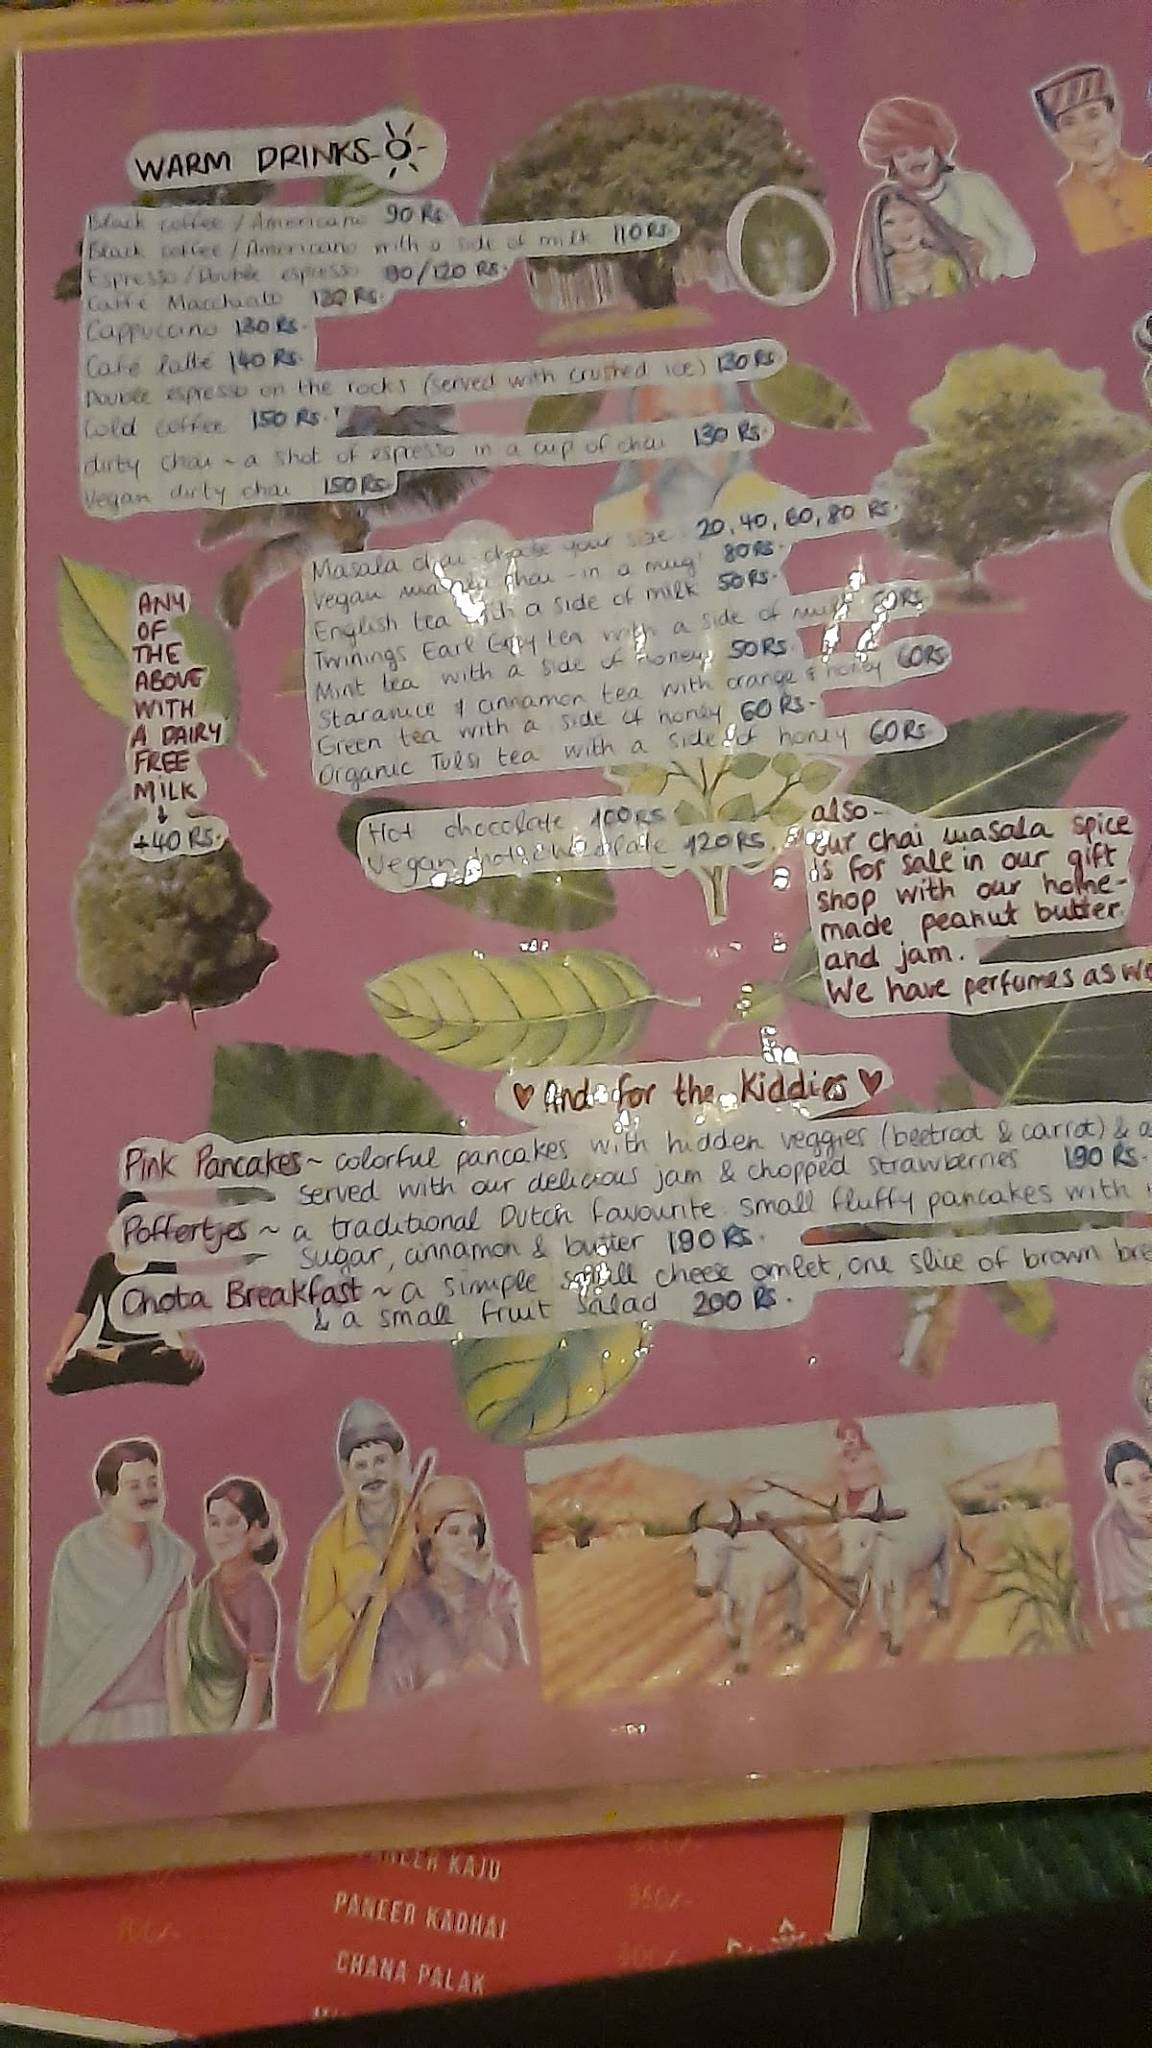 WARM DRINKS
Black coffee / Americano 90 Rs.
Black coffee / Americano with a side of milk 110 Rs.
Espresso / Double espresso 90/120 Rs.
Caffe Macchiato 120 Rs.
Cappuccino 130 Rs.
Café latte 140 Rs.
Double espresso on the rocks (served with crushed ice) 130 Rs.
Cold coffee 150 Rs.
dirty chai ~ a shot of espresso in a cup of chai 130 Rs.
Vegan dirty chai 150 Rs.
Masala chai choose your size 20, 40, 60, 80 Rs.
Vegan masala chai - in a mug 80 Rs.
English tea with a side of milk 50 Rs.
Twinings Earl Grey tea with a side of milk 60 Rs.
Mint tea with a side of honey 50 Rs.
Staranice & cinnamon tea with orange & honey 60 Rs.
Green tea with a side of honey 60 Rs.
Organic Tulsi tea with a side of honey 60 Rs.
ANY
OF
THE
ABOVE
WITH
A DAIRY
FREE
MILK
↓
+40 RS.
Hot chocolate 100 Rs
Vegan hot chocolate 120 Rs.
also-
our chai masala spice
is for sale in our gift
shop with our home-
made peanut butter
and jam.
We have perfumes as we
♥ And for the Kiddies ♥
Pink Pancakes ~ colorful pancakes with hidden veggies (beetroot & carrot) & a
served with our delicious jam & chopped strawberries 190 Rs.
Poffertjes ~ a traditional Dutch favourite small fluffy pancakes with
sugar, cinnamon & butter 190 Rs.
Chota Breakfast ~ a simple small cheese omlet, one slice of brown bre
& a small fruit salad 200 Rs.
KAJU
PANEER KADHAI
CHANA PALAK